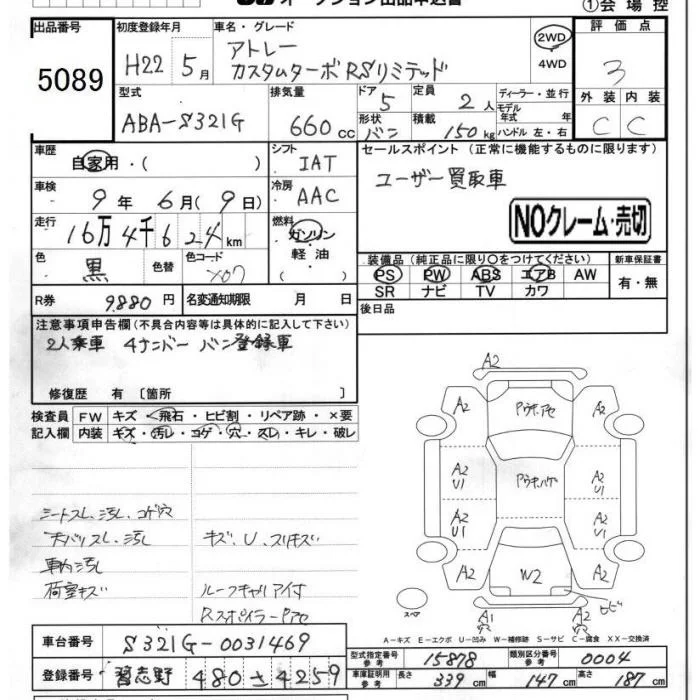 オークション出品申込書
①会場控
出品番号
5089
初度登録年月
H22 5月
車名・グレード
アトレー
カスタムターボRSリミテッド
2WD
4WD
評価点
3
外装 内装
C C
型式
ABA-S321G
排気量
660cc
ドア 5
形状 バン
定員 2人
積載 150kg
ディーラー・並行
モデル年式 年
ハンドル 左・右
車歴
自家用・( )
シフト
IAT
車検
9年 6月(9日)
冷房
AAC
走行
16万4千624km
燃料
ガソリン
軽油
( )
色
黒
色替
色コード
X07
R券
9,880円
名変通知期限 月 日
セールスポイント(正常に機能するものに限ります)
ユーザー買取車
NOクレーム・売切
装備品(純正品に限り○をつけてください)
PS PW ABS エアB AW
SR ナビ TV カワ
新車保証書
有・無
後日品
注意事項申告欄(不具合内容等は具体的に記入して下さい)
2人乗車 4ナンバー バン登録車
修復歴 有〔箇所
検査員記入欄
FW キズ・飛石・ヒビ割・リペア跡・×要
内装 キズ・汚レ・コゲ・穴・スレ・キレ・破レ
シートスレ、汚レ、コゲ穴
天バリスレ、汚レ
車内汚レ
荷室キズ
キズ、U、スリキズ
ルーフキャリア付
Rスポイラー
A2
A2
A2
A2
U1
A2
U1
A2
U1
A2
U1
A2
W2
A2
ヒビ
A1
A2
スペア
A-キズ E-エクボ U-凹み W-補修跡 S-サビ C-腐食 XX-交換済
車台番号
S321G-0031469
登録番号
習志野 480 さ 4259
型式指定番号
参考
15878
類別区分番号
参考
0004
車庫証明用
参考
長さ 339cm
幅 147cm
高さ 187cm